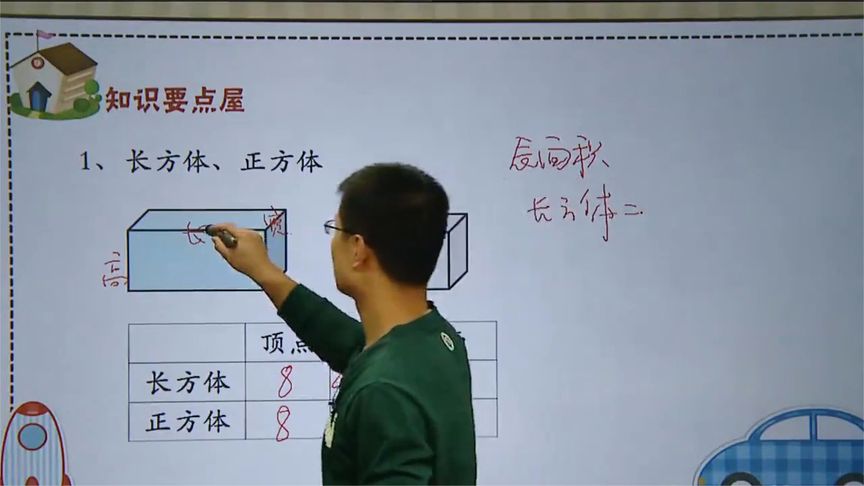 知识要点屋
1、长方体、正方体
长
宽
高
表面积
长方体=
顶点
长方体 8
正方体 8